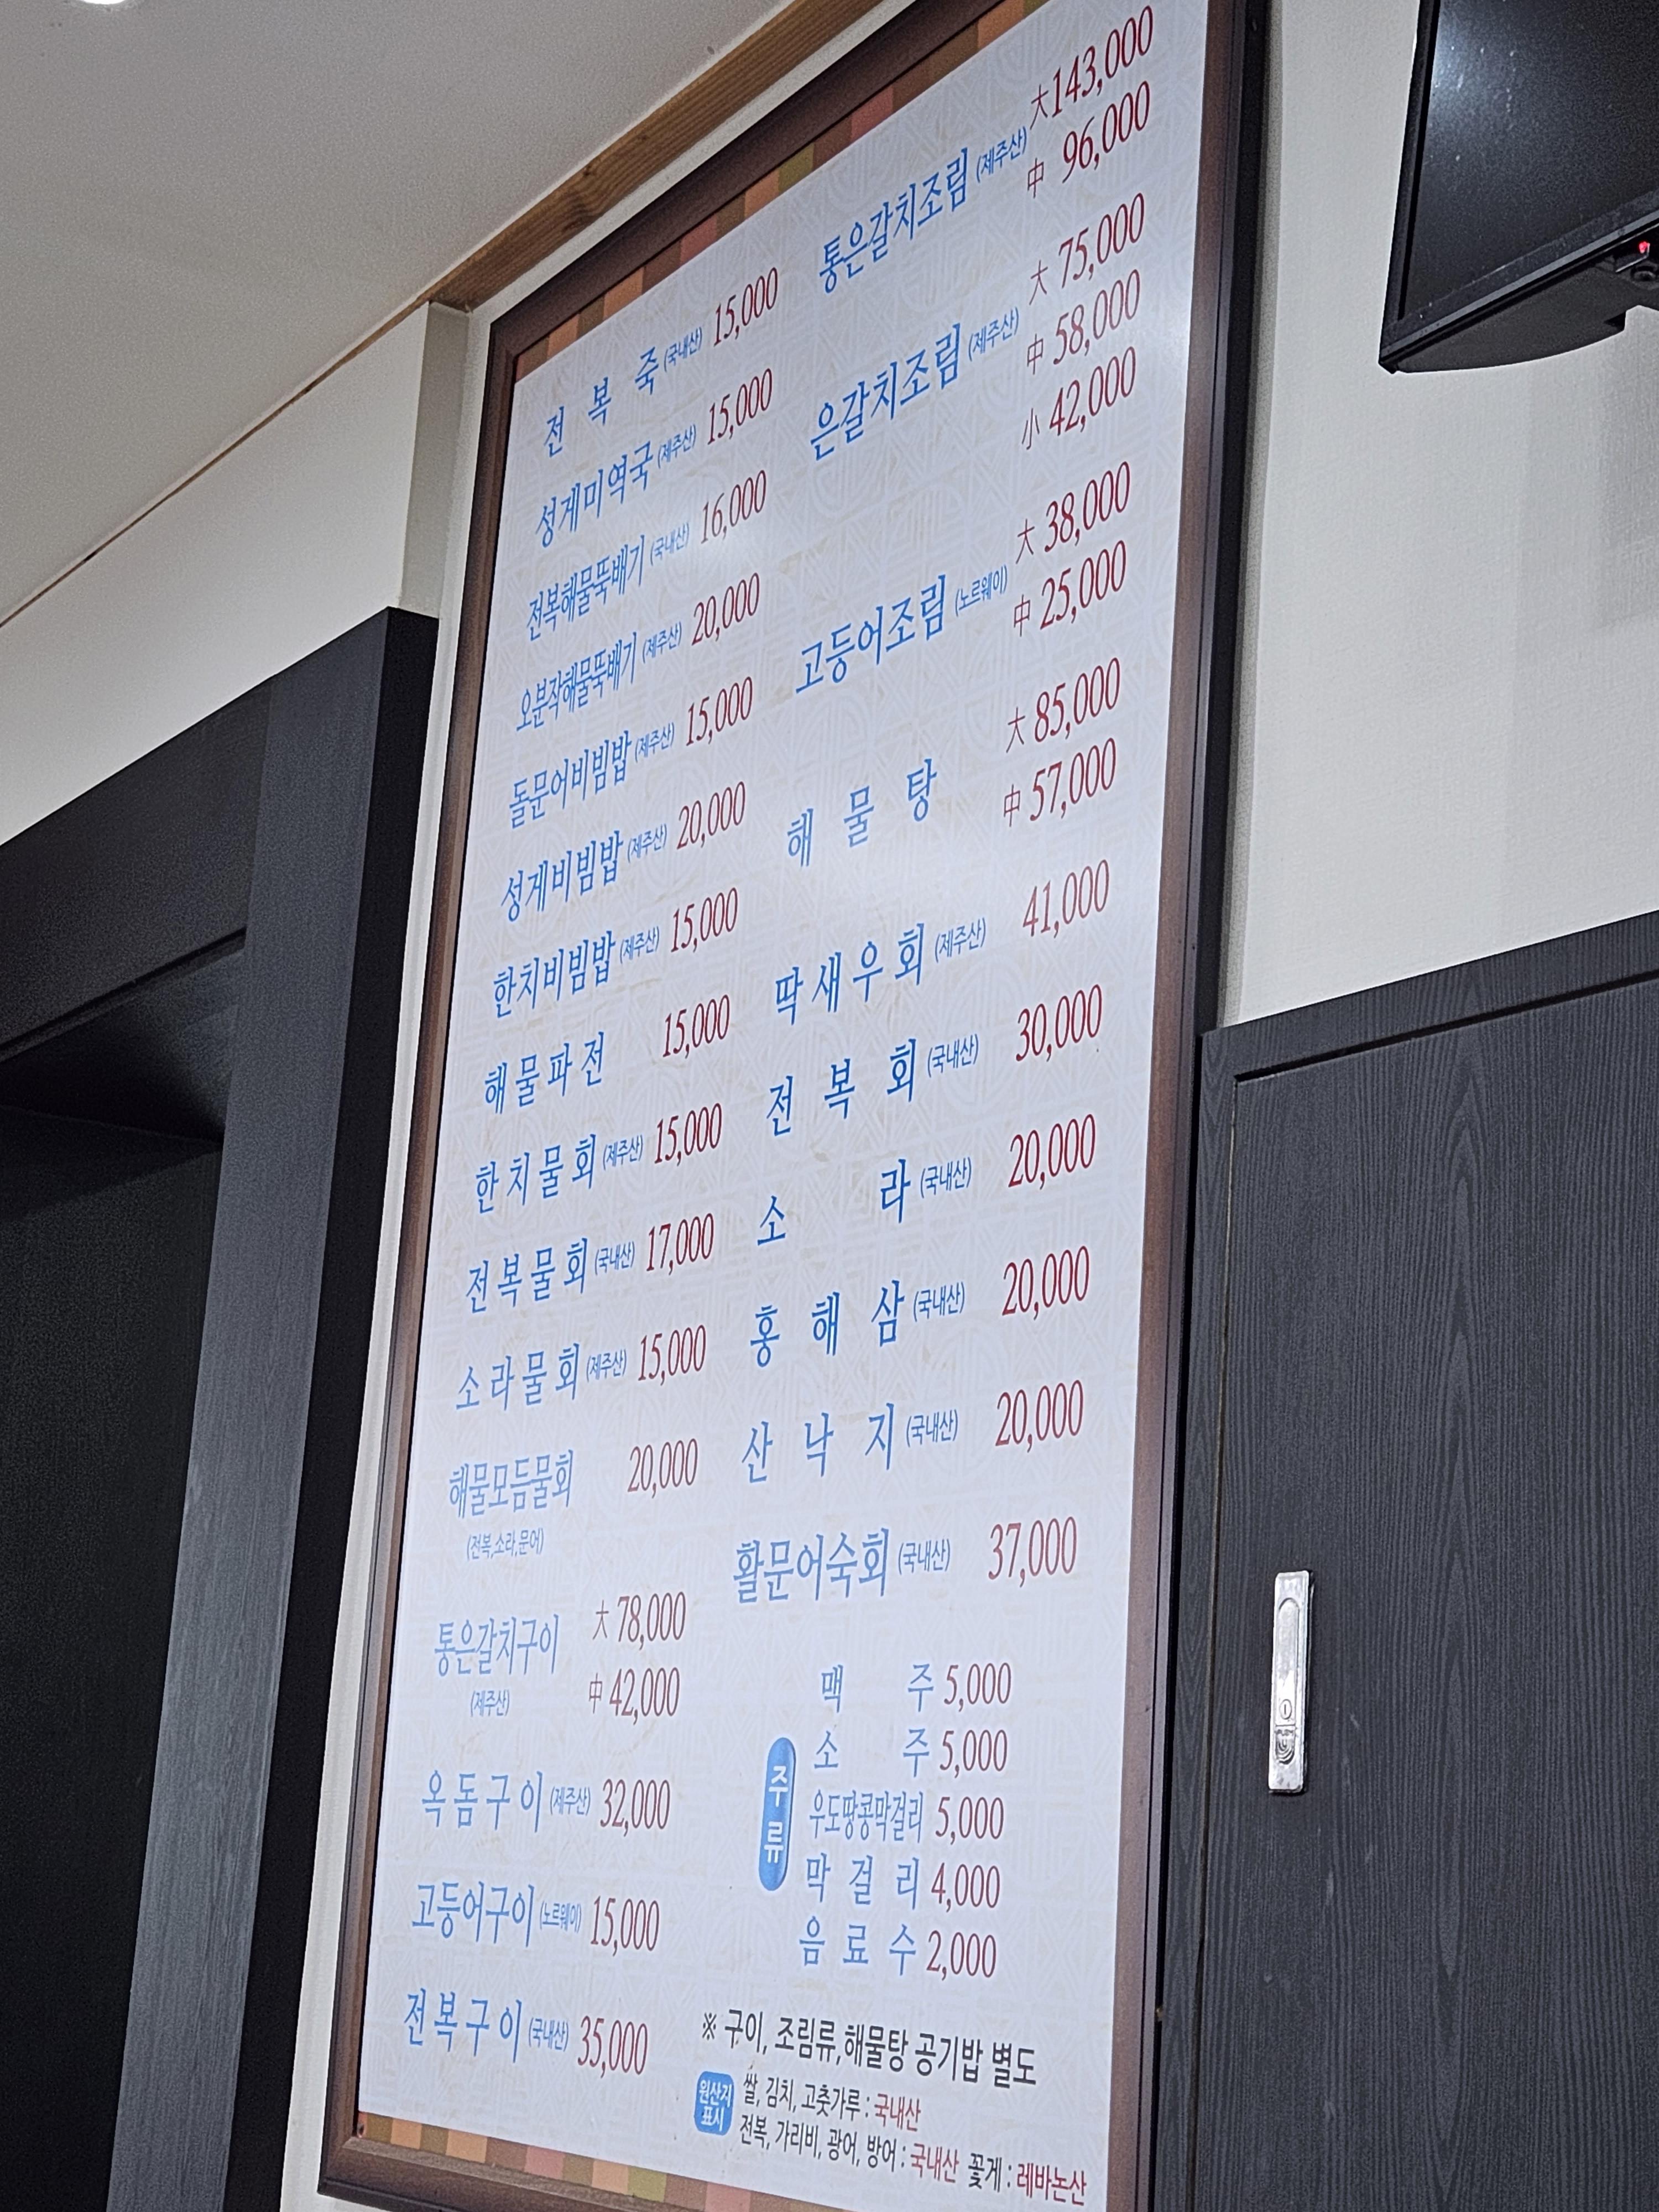 전복죽(국내산) 15,000
성게미역국(제주산) 15,000
전복해물뚝배기(국내산) 16,000
오분작해물뚝배기(제주산) 20,000
돌문어비빔밥(제주산) 15,000
성게비빔밥(제주산) 20,000
한치비빔밥(제주산) 15,000
해물파전 15,000
한치물회(제주산) 15,000
전복물회(국내산) 17,000
소라물회(제주산) 15,000
해물모듬물회 20,000
(전복,소라,문어)
통은갈치구이 大 78,000
(제주산) 中 42,000
옥돔구이(제주산) 32,000
고등어구이(노르웨이) 15,000
전복구이(국내산) 35,000
통은갈치조림(제주산) 大 143,000
中 96,000
은갈치조림(제주산) 大 75,000
中 58,000
小 42,000
고등어조림(노르웨이) 大 38,000
中 25,000
해물탕 大 85,000
中 57,000
딱새우회(제주산) 41,000
전복회(국내산) 30,000
소라(국내산) 20,000
홍해삼(국내산) 20,000
산낙지(국내산) 20,000
활문어숙회(국내산) 37,000
주류
맥주 5,000
소주 5,000
우도땅콩막걸리 5,000
막걸리 4,000
음료수 2,000
※ 구이, 조림류,해물탕 공기밥 별도
원산지
표시
쌀, 김치, 고춧가루 : 국내산
전복, 가리비, 광어, 방어 : 국내산 꽃게 : 레바논산